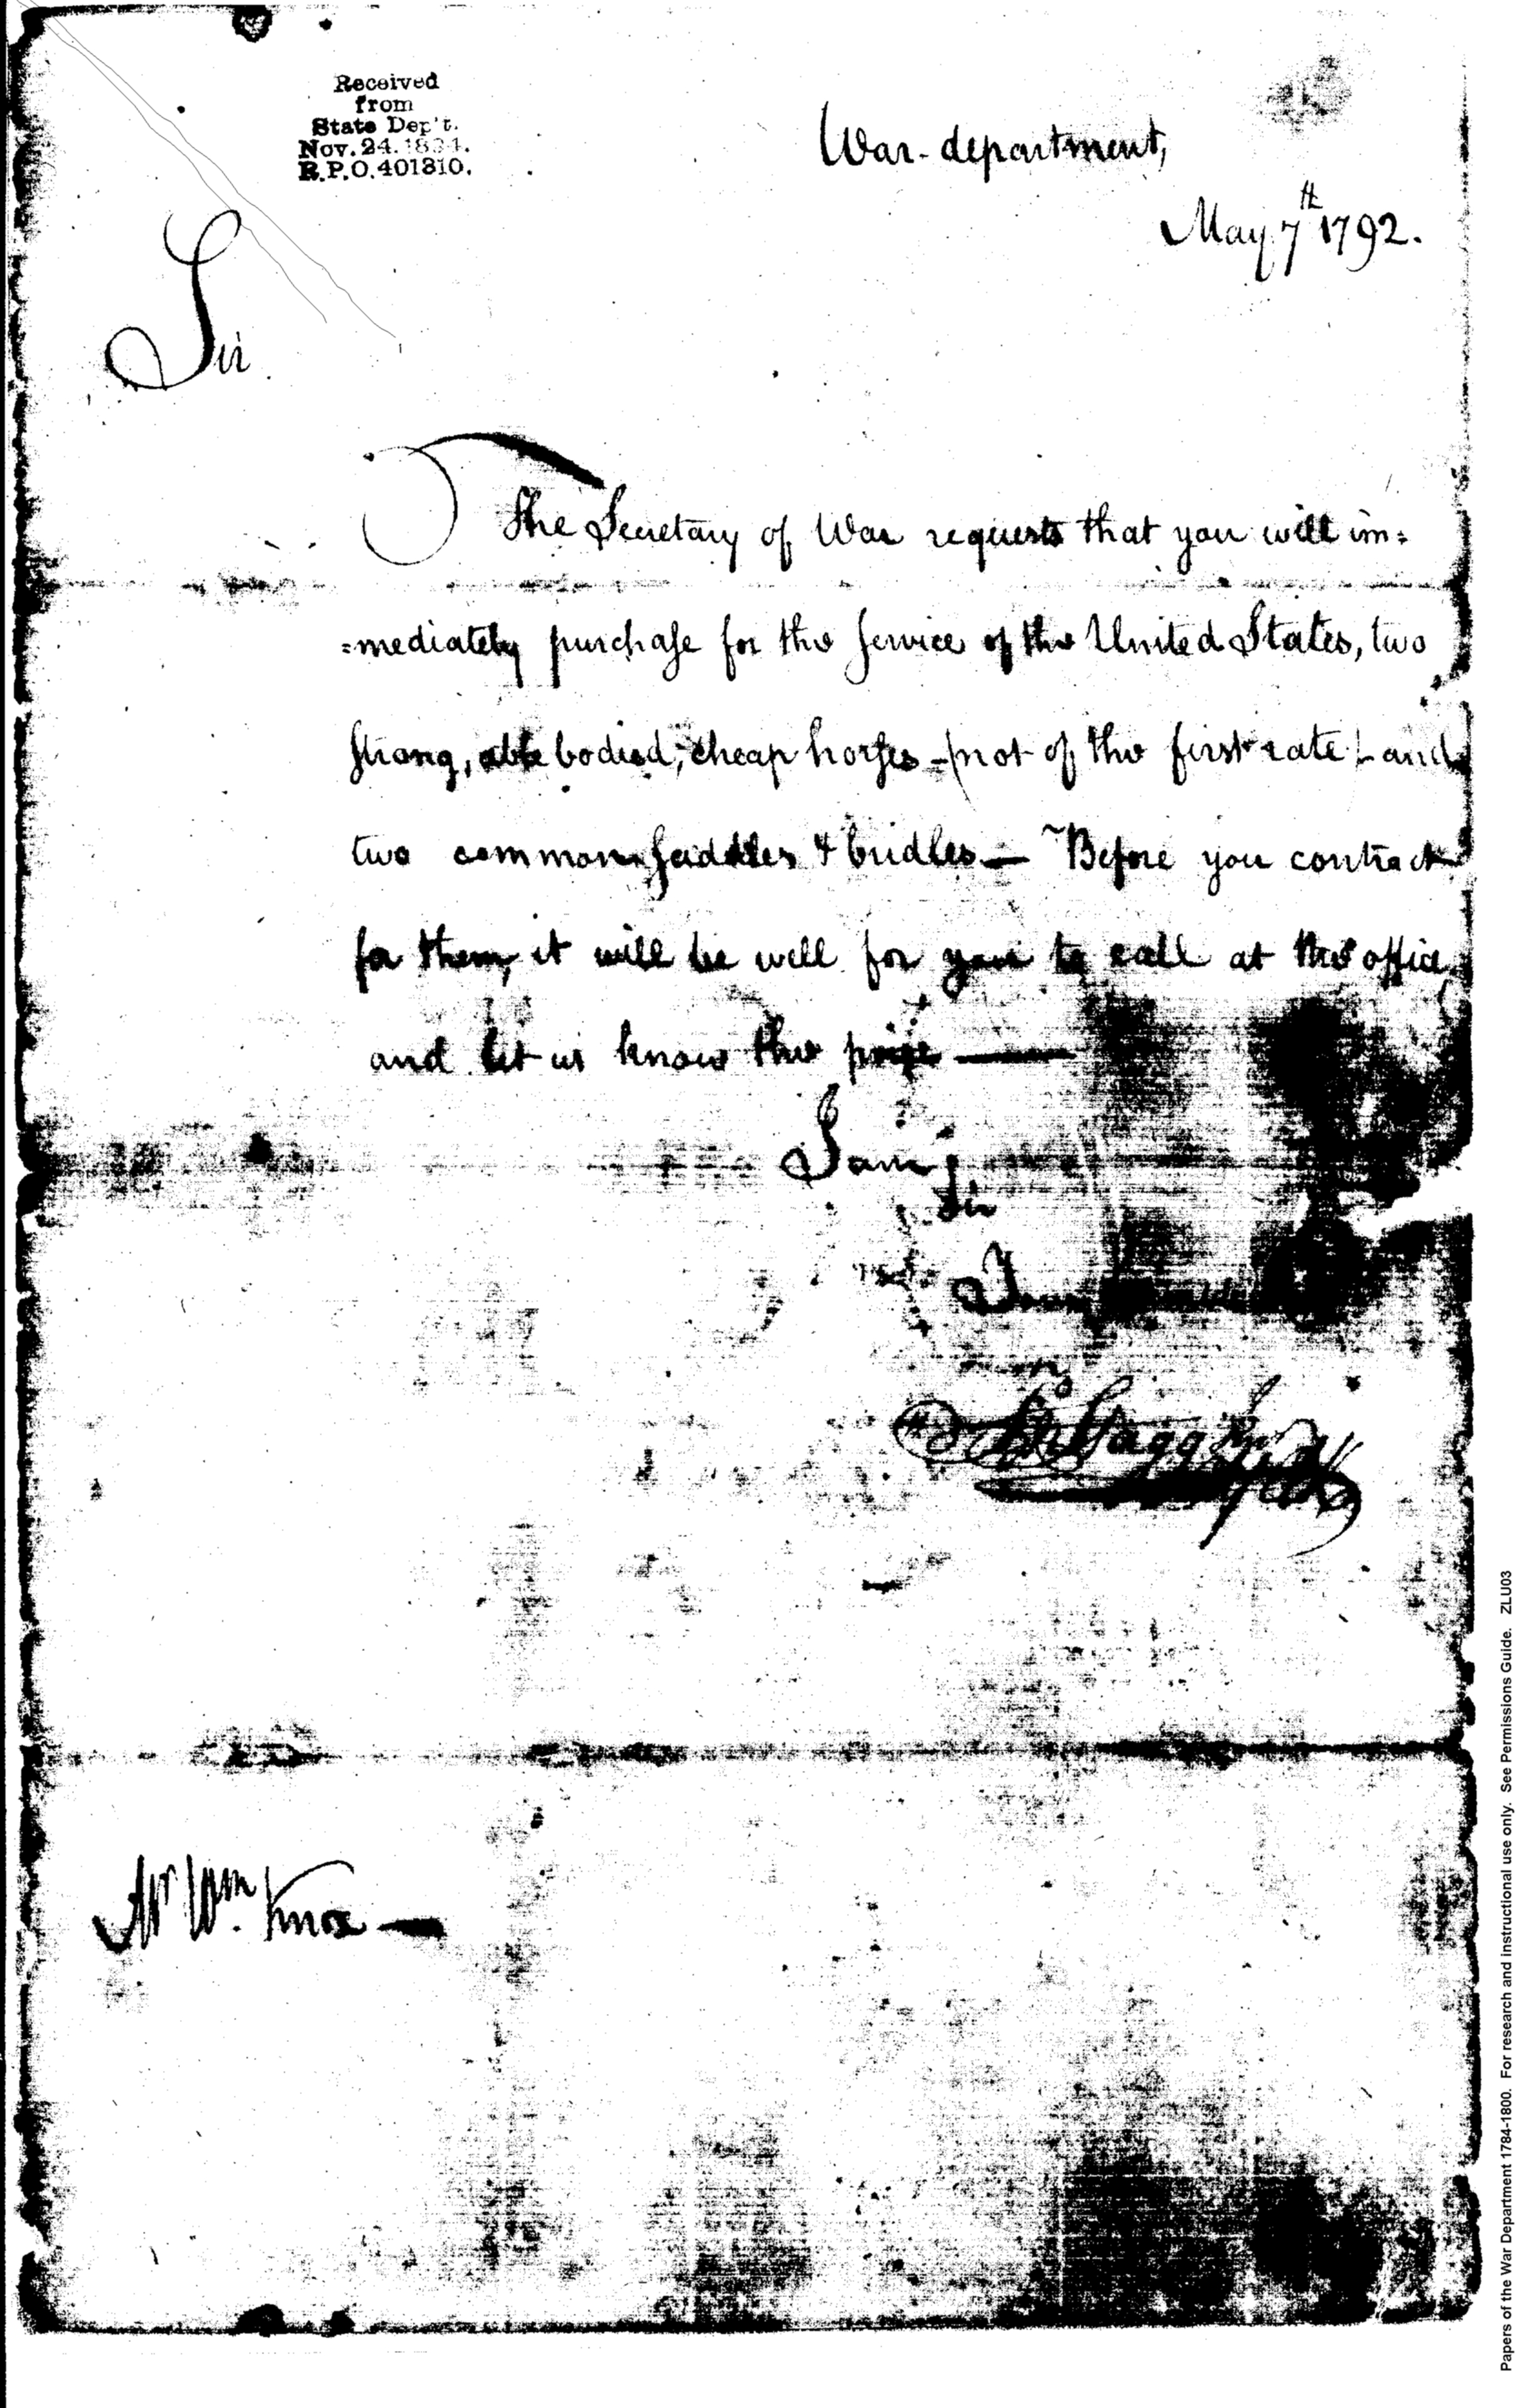 Received
from
State Dep't.
Nov. 24. 1894.
R.P.O. 401310.
War-department,
May 7th 1792.
Sir.
The Secretary of War requests that you will im=
=mediately purchase for the service of the United States, two
strong, able bodied, cheap horses - (not of the first rate) - and
two common saddles & bridles — Before you contract
for them, it will be well for you to call at the office
and let us know the price —
I am
Sir
Jno Stagg Junr
Mr Wm. Knox —
Papers of the War Department 1784-1800. For research and instructional use only. See Permissions Guide. ZLU03